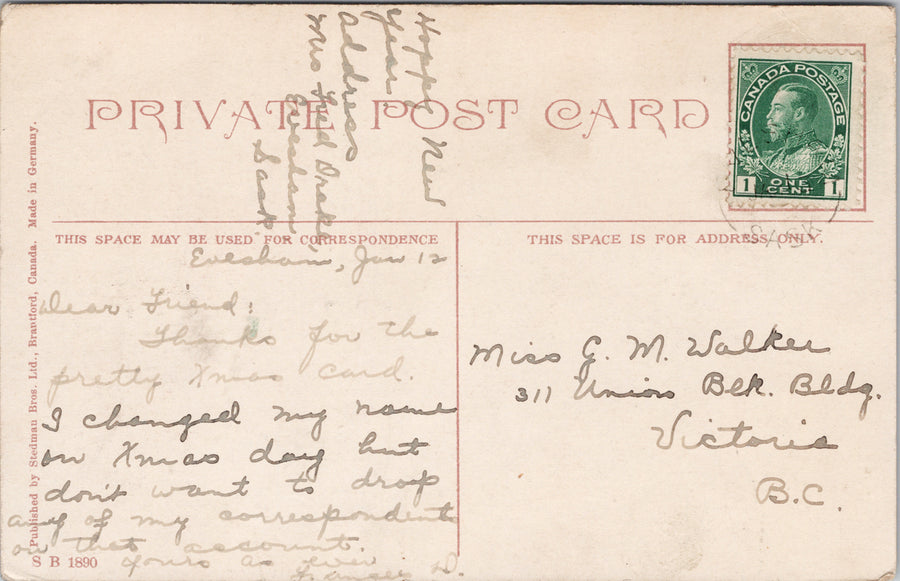 Happy New
Year.
Address
Mrs Fred Drake,
Evesham,
Sask.
PRIVATE POST CARD
CANADA POSTAGE
1 ONE CENT 1
SASK
THIS SPACE MAY BE USED FOR CORRESPONDENCE
THIS SPACE IS FOR ADDRESS ONLY.
Evesham, Jan 12
Dear Friend:
Thanks for the
pretty Xmas card.
I changed my name
on Xmas day but
don't want to drop
any of my correspondents
on that account.
Yours as ever
Frances D.
Miss G. M. Walker
311 Union Bk. Bldg.
Victoria
B.C.
Published by Stedman Bros. Ltd., Brantford, Canada. Made in Germany.
S B 1890